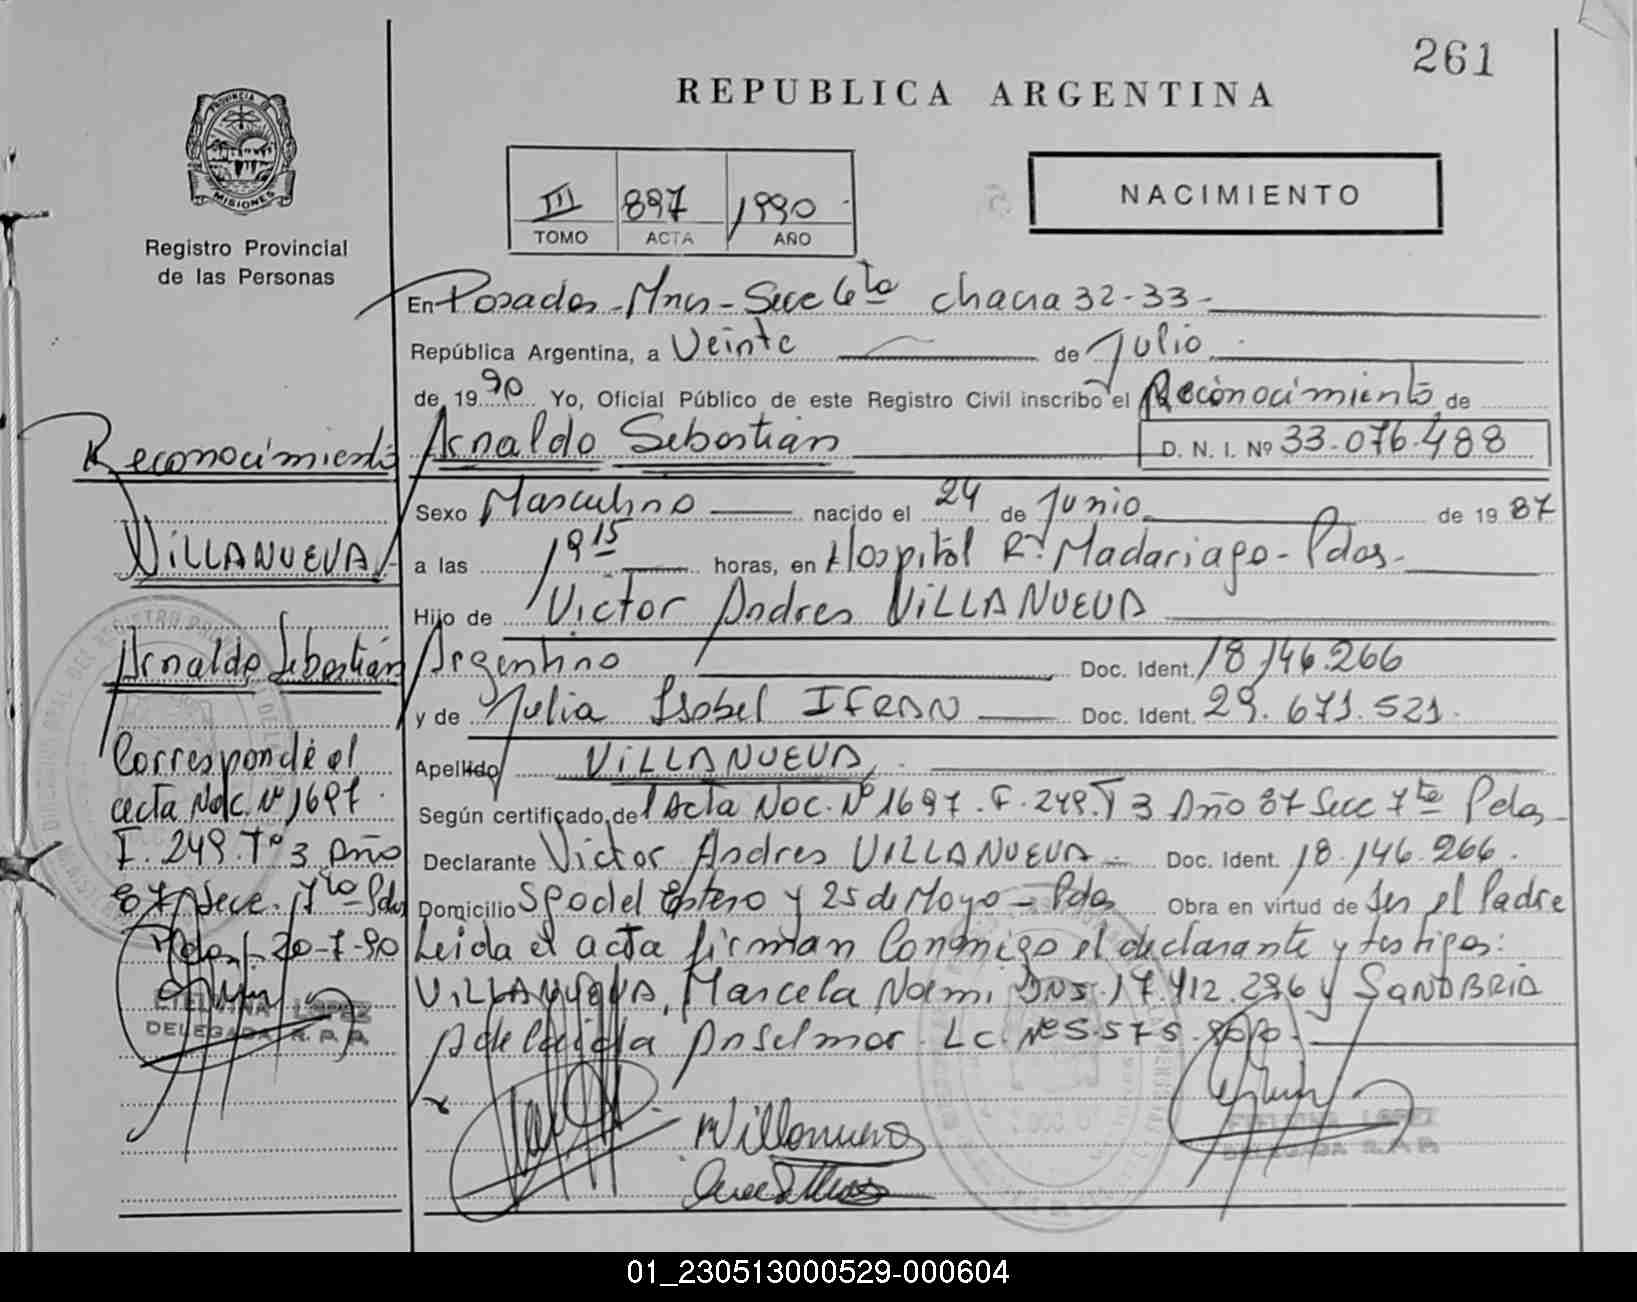 261
REPUBLICA ARGENTINA
PROVINCIA DE
MISIONES
Registro Provincial
de las Personas
III 897 1990
TOMO ACTA AÑO
NACIMIENTO
En Posadas - Mnes - Secc 6ta chacra 32-33-
República Argentina, a Veinte de Julio
de 1990 Yo, Oficial Público de este Registro Civil inscribo el Reconocimiento de
Arnaldo Sebastián D. N. I. Nº 33.076.488
Sexo Masculino nacido el 24 de Junio de 1987
a las 19 15 horas, en Hospital R. Madariaga - Pdas -
Hijo de Victor Andres VILLANUEVA
Argentino Doc. Ident. 18.146.266
y de Julia Isabel IFRAN Doc. Ident. 29.671.521.
Apellido VILLANUEVA
Según certificado de Acta Nac. Nº 1697. F. 249. T 3 Año 87 Secc 7ta Pdas
Declarante Victor Andres VILLANUEVA Doc. Ident. 18.146.266.
Domicilio Sgo del Estero y 25 de Mayo - Pdas Obra en virtud de Ser el Padre
Leida el acta firman Conmigo el declarante y testigos:
VILLANUEVA, Marcela Noemi DNI. 17.412.296 y SANABRIA
Adelaida Anselmo. LC. Nº 5.575.
Villanueva
Reconocimiento
VILLANUEVA
Arnaldo Sebastián
Corresponde al
acta Nac. Nº 1697.
F. 249. Tº 3 Año
87 Secc. 7ta Pdas
Pdas, 20-7-90
ETELVINA LOPEZ
DELEGADA R.P.P.
ETELVINA LOPEZ
DELEGADA R.P.P.
01_230513000529-000604